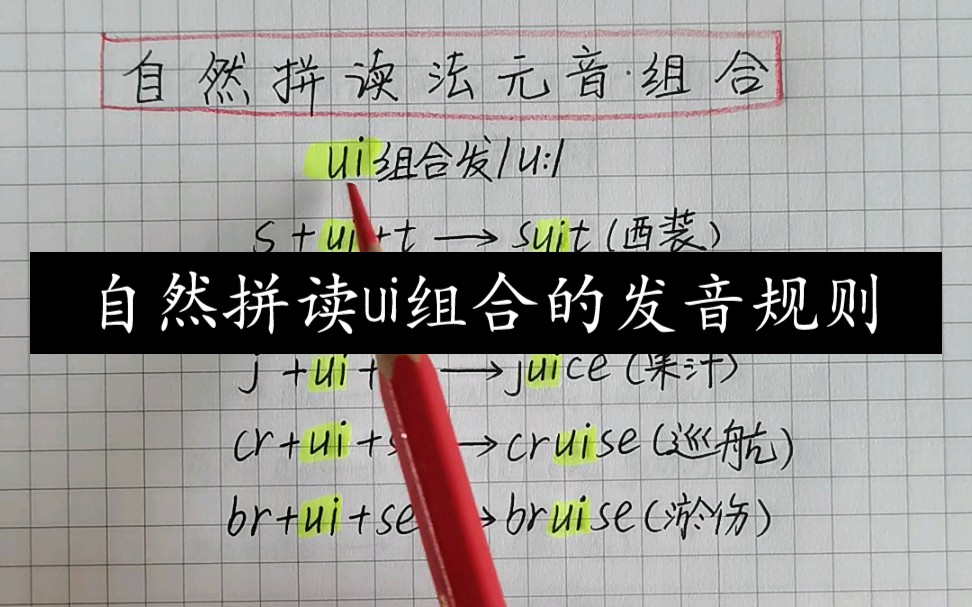 自然拼读法元音·组合
ui组合发/u:/
s+ui+t→suit(西装)
自然拼读ui组合的发音规则
j+ui+→juice(果汁)
cr+ui+s→cruise(巡航)
br+ui+se→bruise(淤伤)